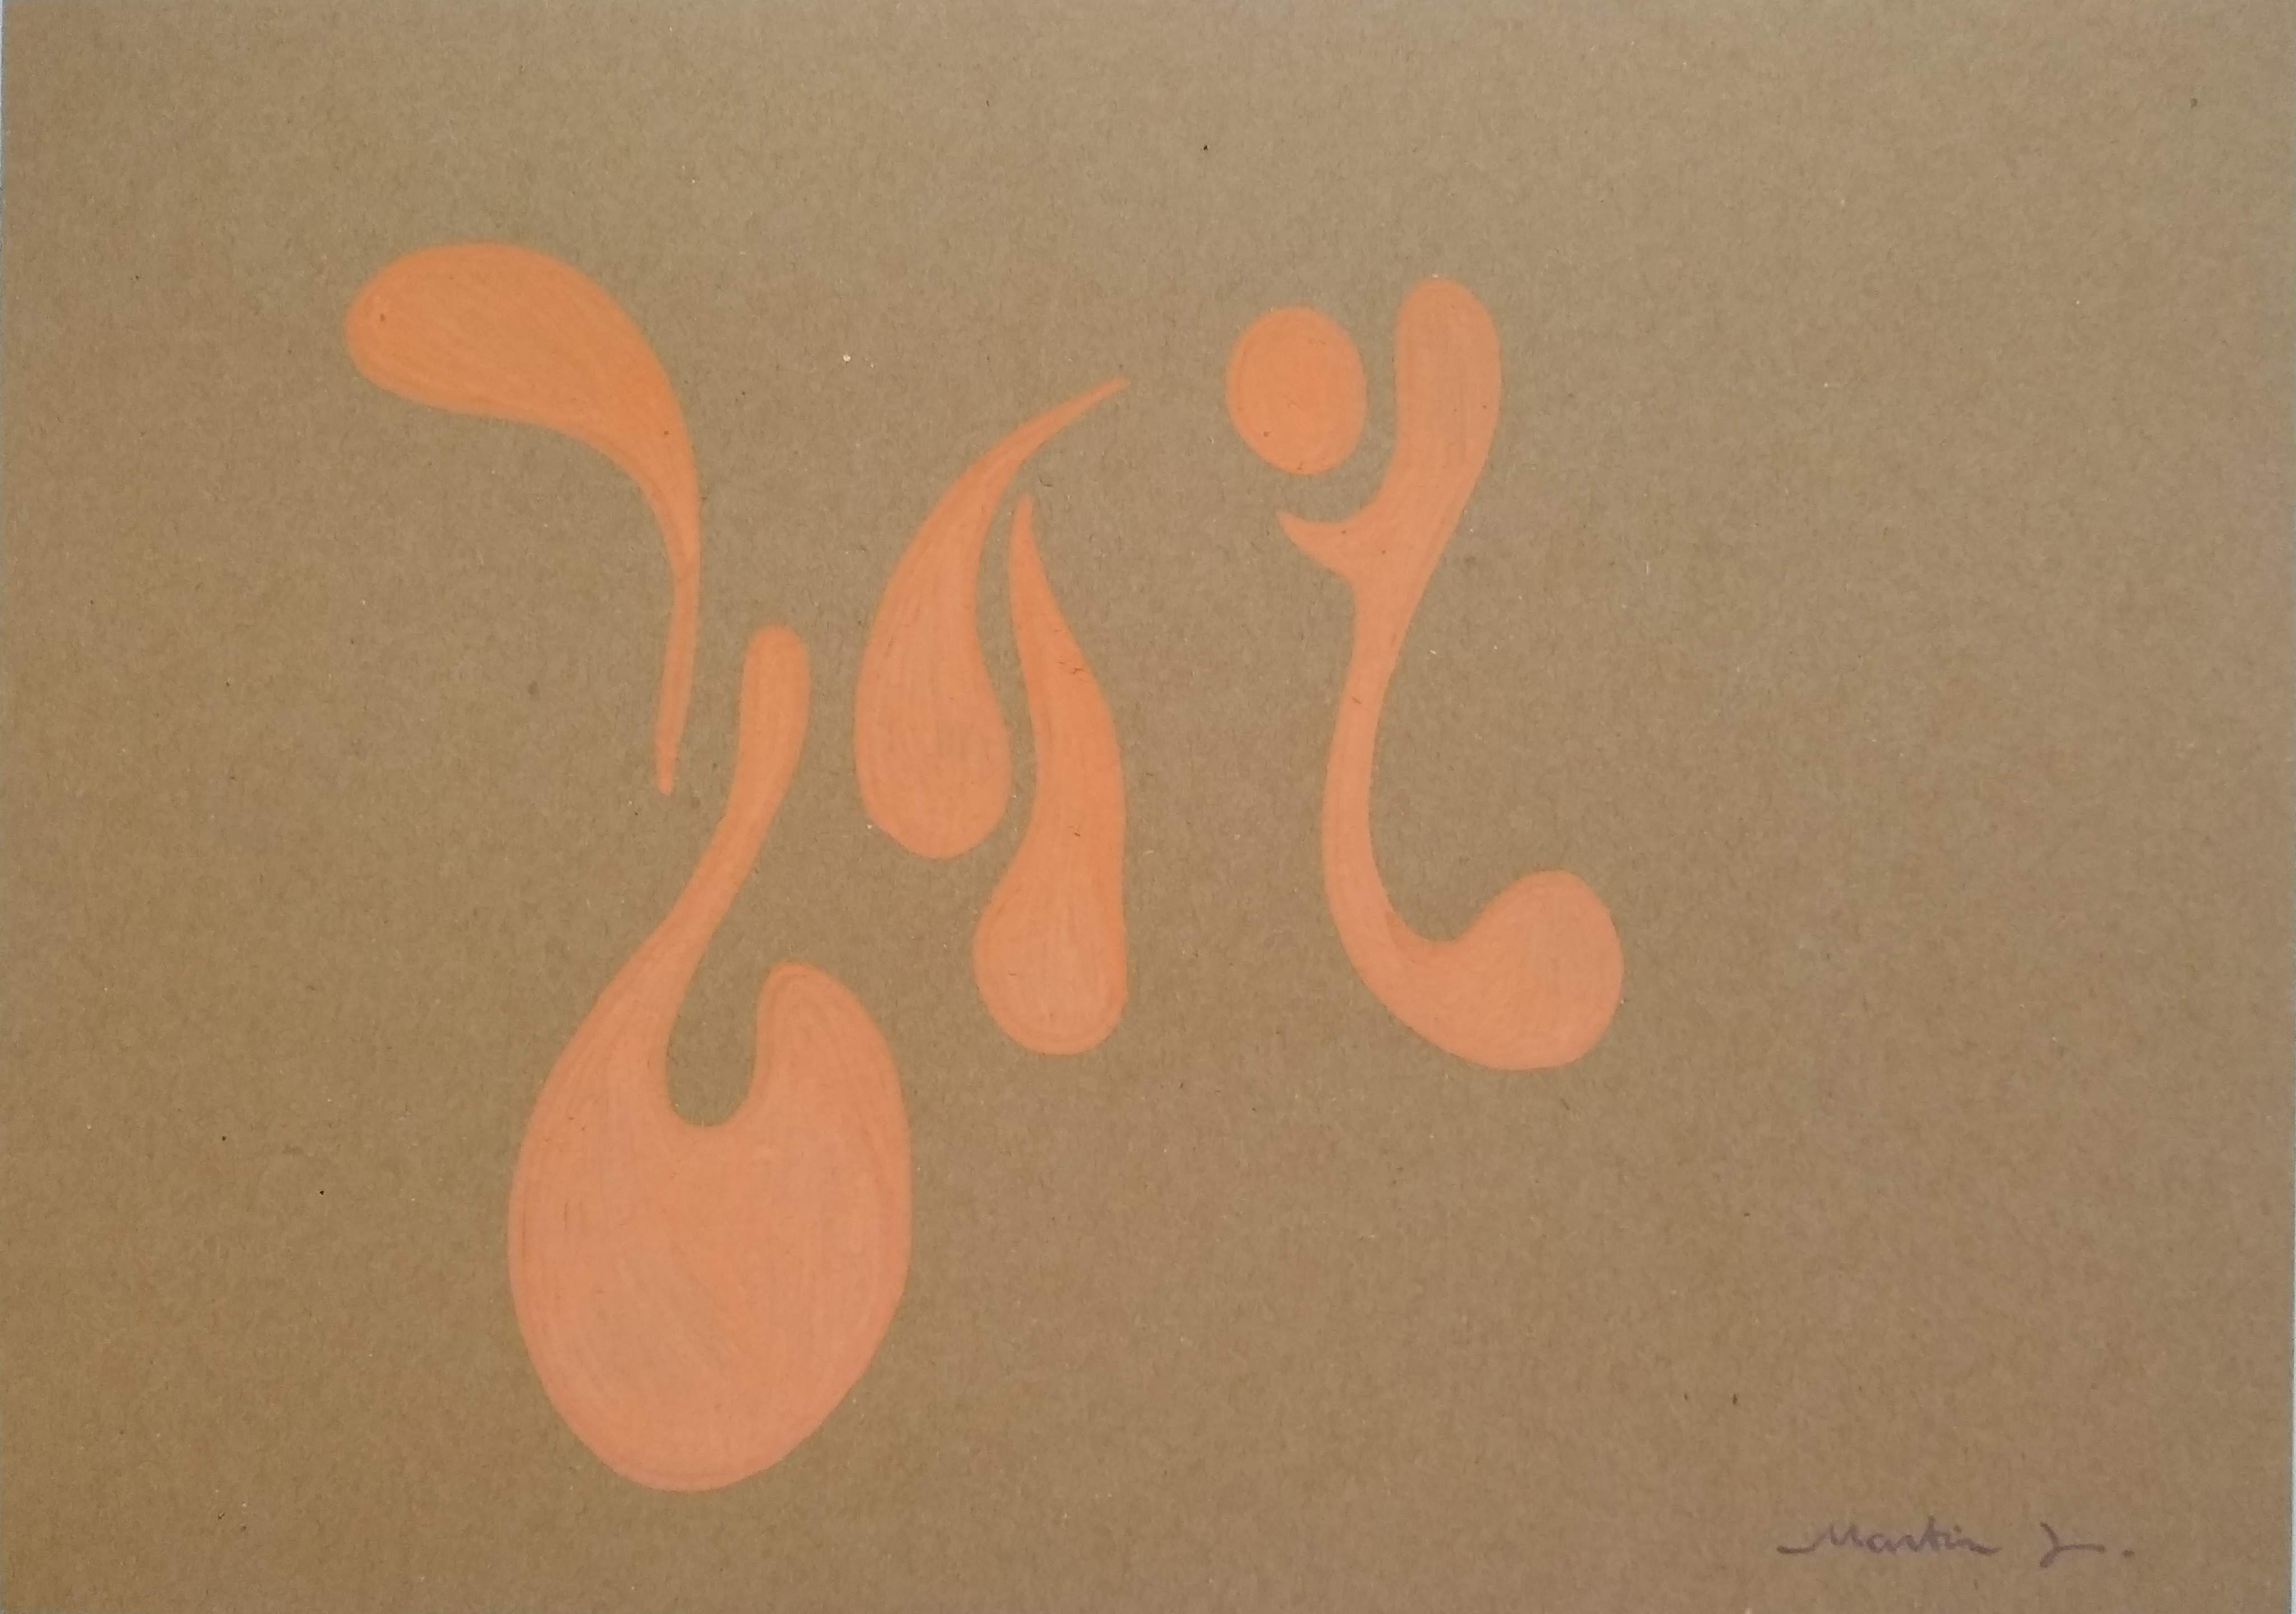 Martin J.